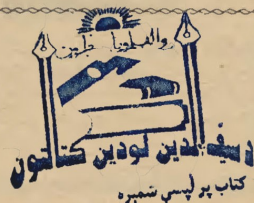 والقلم وما يسطرون
د سيف الدين لودين كتابتون
كتاب پرلپسي شمبره